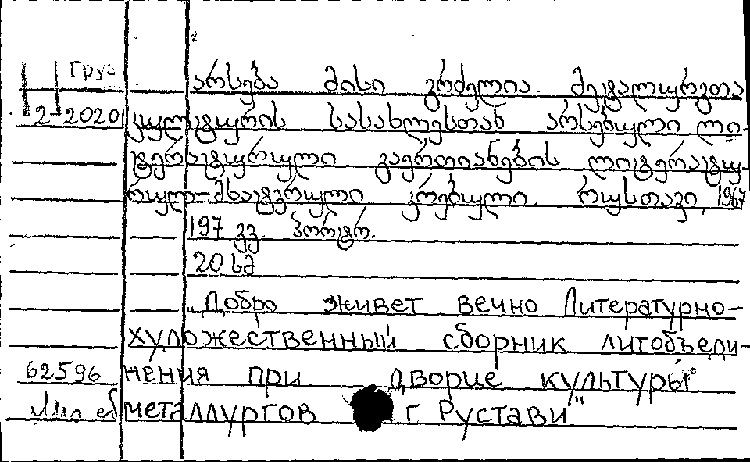 Груз
არსება მისი გრძელია. მეტალურგთა
2-2020 კულტურის სასახლესთან არსებული ლი-
ტერატურული გაერთიანების ლიტერატუ-
რულ-მხატვრული კრებული. რუსთავი, 1967
197 გვ. პორტრ.
20 სმ
„Добро живет вечно Литературно-
художественный сборник литобъеди-
62596 нения при дворце культуры
металлургов г Рустави"